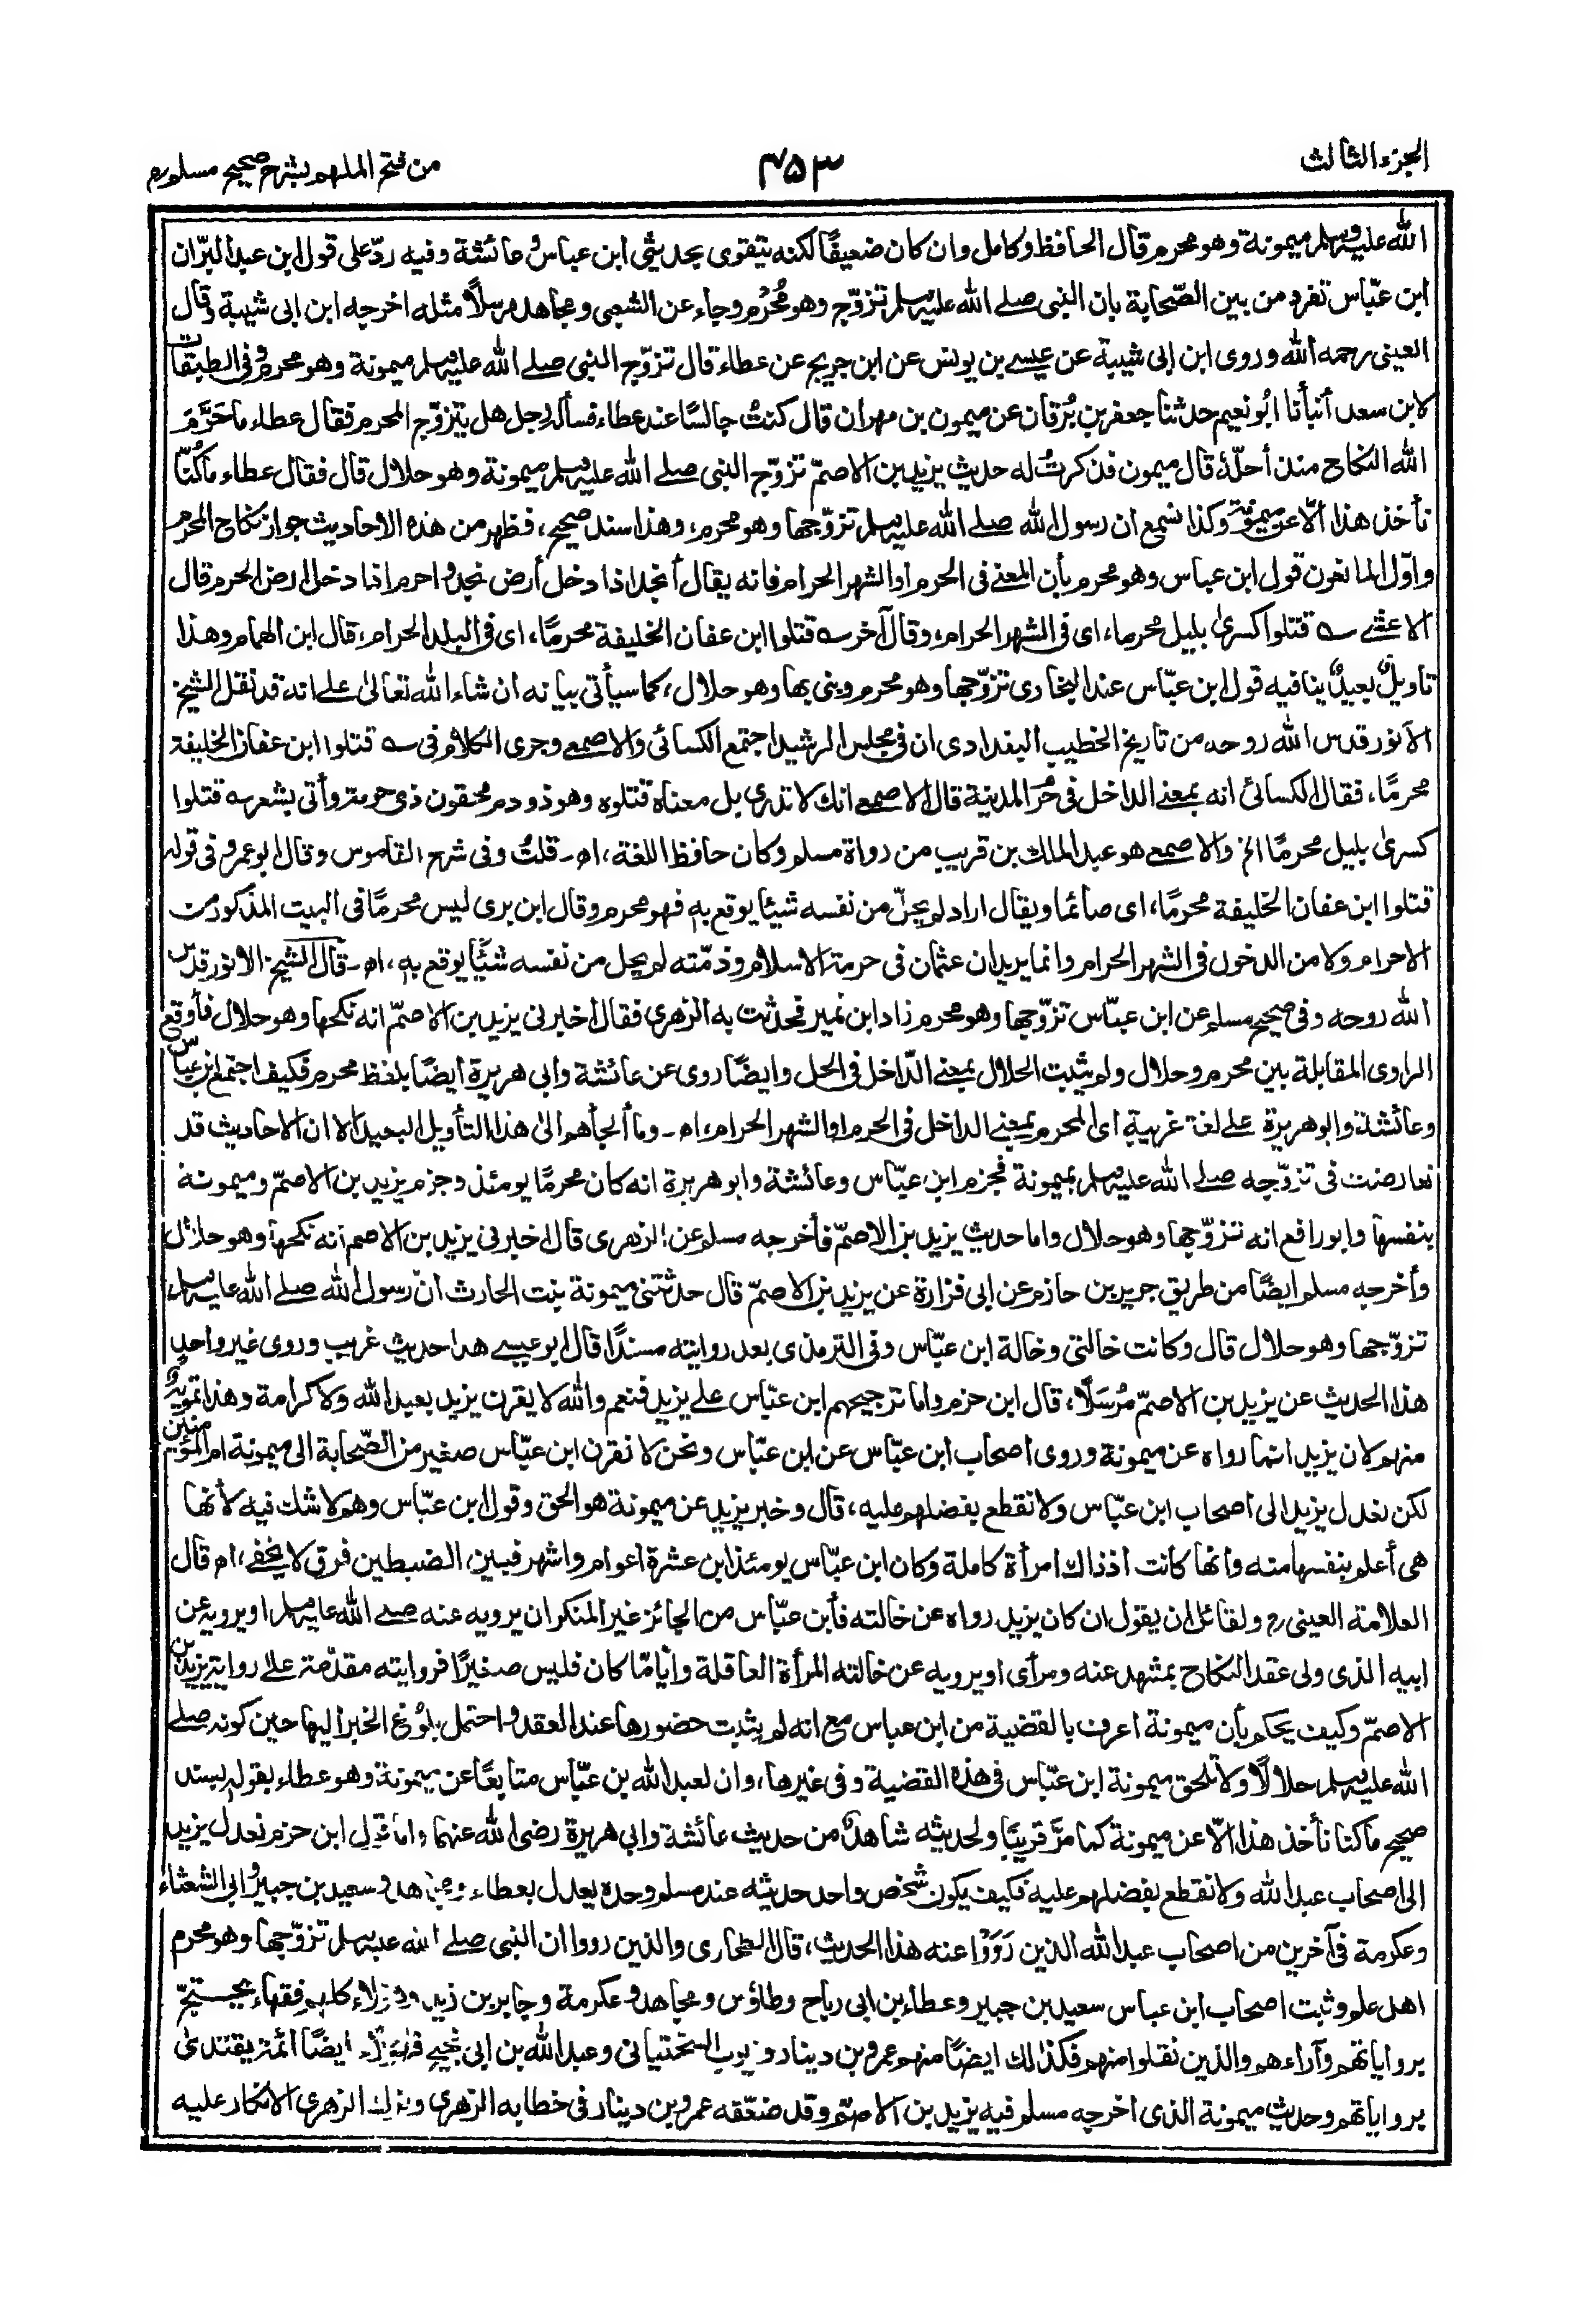 الجزء الثالث
٤٥٣
من فتح الملهم بشرح صحيح مسلم رم
الله عليه وسلم ميمونة وهو محرم قال الحافظ وكامل وان كان ضعيفًا لكنه يتقوى بحديثى ابن عباس وعائشة وفيه ردّ على قول ابن عبد البرّ ان
ابن عبّاس تفرد من بين الصّحابة بان النبى صلے الله عليه وسلم تزوّج وهو مُحْرم وجاء عن الشعبى ومجاهد مرسلًا مثله اخرجه ابن ابى شيبة وقال
العينى رحمه الله وروى ابن ابى شيبة عن عيسے بن يونس عن ابن جريج عن عطاء قال تزوّج النبى صلے الله عليه وسلم ميمونة وهو محرم وفى الطبقات
لابن سعد أنبأنا ابُو نعيم حدثنا جعفر بن بُرْقان عن ميمون بن مهران قال كنتُ جالسًا عند عطاء فسأله رجل هل يتزوّج المحرم فقال عطاء ما حَرَّمَ
الله النكاح منذ أحلّهُ قال ميمون فذكرتُ له حديث يزيد بن الاصمّ تزوّج النبى صلے الله عليه وسلم ميمونة وهو حلال قال فقال عطاء ما كُنّا
نأخذ هذا الّا عن ميمونة وكنا نسمع ان رسول الله صلے الله عليه وسلم تزوّجها وهو محرم، وهذا سند صحيح، فظهر من هذه الاحاديث جواز نكاح المحرم
واوّل المانعون قول ابن عباس وهو محرم بأن المعنے فى الحرم او الشهر الحرام فانه يقال أنجد اذا دخل أرض نجد واحرم اذا دخل ارض الحرم قال
الاعشے ؎ قتلوا كسرىٰ بليل محرما، اى فى الشهر الحرام، وقال آخر ؎ قتلوا ابن عفان الخليفة محرمًا، اى فى البلد الحرام، قال ابن الهمام وهذا
تاويلٌ بعيدٌ ينافيه قول ابن عبّاس عند البخارى تزوّجها وهو محرم وبنى بها وهو حلال، كما سيأتى بيانه ان شاء الله تعالىٰ علے انه قد نقل الشيخ
الانور قدس الله روحه من تاريخ الخطيب البغدادى ان فى مجلس الرشيد اجتمع الكسائى والاصمعے وجرى الكلام فى ؎ قتلوا ابن عفان الخليفة
محرمًا، فقال الكسائى انه بمعنے الداخل فى حرَم المدينة قال الاصمعے انك لا تدرى بل معناه قتلوه وهو ذو دم محقون ذى حرمة وأتى بشعر ؎ قتلوا
كسرىٰ بليل محرمًا الخ والاصمعے هو عبد الملك بن قريب من رواة مسلم وكان حافظ اللغة، اھ۔ قلتُ وفى شرح القاموس وقال ابو عمرو فى قوله
قتلوا ابن عفان الخليفة محرمًا، اى صائما ويقال اراد لم يحلّ من نفسه شيئا يوقع به فهو محرم وقال ابن برى ليس محرمًا فى البيت المذكور من
الاحرام ولا من الدخول فى الشهر الحرام وانما يريد ان عثمان فى حرمة الاسلام وذمّته لم يحل من نفسه شيئًا يوقع به، اھ۔ قال الشيخ الانور قدس
الله روحه وفى صحيح مسلم عن ابن عبّاس تزوّجها وهو محرم زاد ابن نمير فحدثت به الزهرى فقال اخبرنى يزيد بن الاصمّ انه نكحها وهو حلال فأوقع
الراوى المقابلة بين محرم وحلال ولم يثبت الحلال بمعنے الدّاخل فى الحل وايضًا روى عن عائشة وابى هريرة ايضًا بلفظ محرم فكيف اجتمع ابن عباس
وعائشة وابو هريرة علے لغة غريبة اى المحرم بمعنے الداخل فى الحرم او الشهر الحرام، اھ۔ وما ألجأهم الىٰ هذا التأويل البعيد الا ان الاحاديث قد
تعارضت فى تزوّجه صلے الله عليه وسلم بميمونة فجزم ابن عبّاس وعائشة وابو هريرة انه كان محرمًا يومئذ وجزم يزيد بن الاصمّ وميمونة
بنفسها وابو رافع انه تزوّجها وهو حلال واما حديث يزيد بن الاصمّ فأخرجه مسلم عن الزهرى قال اخبرنى يزيد بن الاصم انه نكحها وهو حلال
وأخرجه مسلم ايضًا من طريق جرير بن حازم عن ابى فزارة عن يزيد بن الاصمّ قال حدثتنى ميمونة بنت الحارث انّ رسول الله صلے الله عليه وسلم
تزوّجها وهو حلال قال وكانت خالتى وخالة ابن عبّاس وفى الترمذى بعد روايته مسندًا قال ابو عيسے هذا حديث غريب وروى غير واحد
هذا الحديث عن يزيد بن الاصمّ مُرْسَلًا، قال ابن حزم واما ترجيحهم ابن عبّاس علے يزيد فنعم والله لا يقرن يزيد بعبد الله ولا كرامة وهذا تمويه
منهم لان يزيد انما رواه عن ميمونة وروى اصحاب ابن عبّاس عن ابن عبّاس ونحن لا نقرن ابن عبّاس صغير من الصّحابة الى ميمونة ام المؤمنين
لكن نعدل يزيد الى اصحاب ابن عبّاس ولا نقطع بفضلهم عليه، قال وخبر يزيد عن ميمونة هو الحق وقول ابن عبّاس وهم لا شك فيه لأنها
هى أعلم بنفسها منه وانها كانت اذ ذاك امرأة كاملة وكان ابن عبّاس يومئذ ابن عشرة اعوام واشهر فبين الضبطين فرق لا يخفے، اھ قال
العلامة العينى رم ولقائل ان يقول ان كان يزيد رواه عن خالته فأبن عبّاس من الجائز غير المنكر ان يرويه عنه صلے الله عليه وسلم او يرويه عن
ابيه الذى ولى عقد النكاح بمشهد عنه ومرأى او يرويه عن خالته المرأة العاقلة وأيامّا كان فليس صغيرًا فروايته مقدّمة علے رواية يزيد بن
الاصمّ وكيف يحكم بأن ميمونة اعرف بالقضية من ابن عباس مع انه لم يثبت حضورها عند العقد واحتمل بلوُغ الخبر اليها حين كونه صلے
الله عليه وسلم حلالًا ولا تلحق ميمونة ابن عبّاس فى هذه القضية وفى غيرها، وان لعبد الله بن عبّاس متابعًا عن ميمونة وهو عطاء بقوله بسند
صحيح ما كنا نأخذ هذا الّا عن ميمونة كما مرَّ قريبًا ولحديثه شاهدٌ من حديث عائشة وابى هريرة رضى الله عنهما واما قول ابن حزم نعدل يزيد
الى اصحاب عبد الله ولا نقطع بفضلهم عليه فكيف يكون شخص واحد حديثه عند مسلم وحده يعدل بعطاء ومجاهد وسعيد بن جبير وابى الشعثاء
وعكرمة فى آخرين من اصحاب عبد الله الذين رَوَوْا عنه هذا الحديث، قال الطحاوى والذين رووا ان النبى صلے الله عليه وسلم تزوّجها وهو محرم
اهل علم وثبت اصحاب ابن عباس سعيد بن جبير وعطاء بن ابى رباح وطاؤس ومجاهد وعكرمة وجابر بن زيد وهؤلاء كلهم فقهاء يحتجّ
برواياتهم وآراءهم والذين نقلوا منهم فكذالك ايضًا منهم عمرو بن دينار وايوب السختيانى وعبد الله بن ابى نجيح فهؤلاء ايضًا ائمة يقتدىٰ
برواياتهم وحديث ميمونة الذى اخرجه مسلم فيه يزيد بن الاصمّ وقد ضعّفه عمرو بن دينار فى خطابه الزهرى وترك الزهرى الانكار عليه